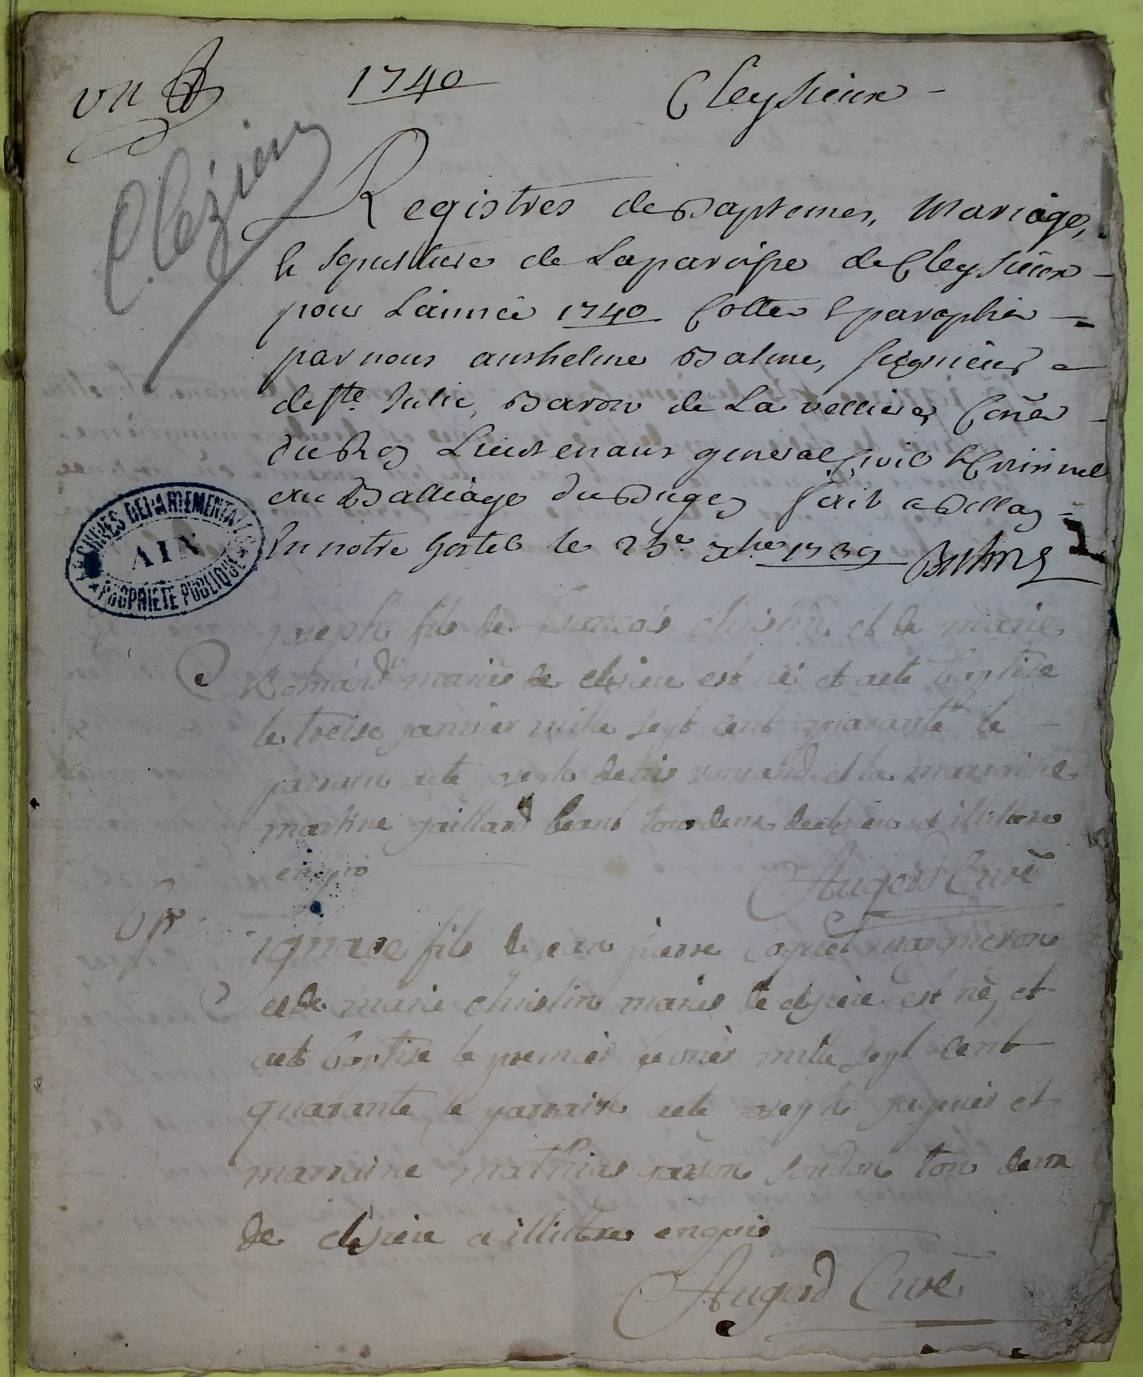 vn
1740
Cleysieux
Clézieu
Registres de Baptemes, Mariages,
& sepulture de Laparoisse de Cleysieux
pour L'année 1740 Cottés & paraphés
par nous anthelme Balme, seigneur
de Ste Julie, Baron de La vellieres Coñer
du Roy Lieutenant general Civil & Criminel
au Balliage du Bugey fait a Belley
En notre hostel le 23e xbre 1739 Balme
ARCHIVES DEPARTEMENTALES
AIN
PROPRIETE PUBLIQUE
joseph fils de francois christin et de marie
Romand mariés de clesieu est né et aeté baptise
le treise janvier mille sept cent quarante le
parrain aeté joseph denis romand et la marraine
martine gaillard tous deux de clesieu illitéres
enquis
Augerd Curé
Bp
ignace fils de jean pierre
et de marie christin mariés de clesieu est né, et
aeté baptise le premier fevrier mille sept cent
quarante, le parrain aeté joseph et
marraine tous deux
de clesieu illittéres enquis
Augerd Curé